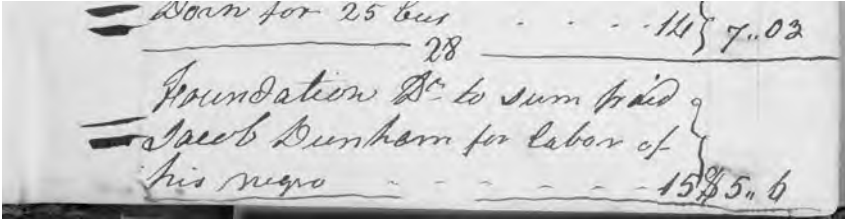 Dorn for 25 bus - - - - 14 } 7..03
28
Foundation Dr to sum paid
Jacob Dunham for labor of
his negro - - - - - - 15 } $5.. 6